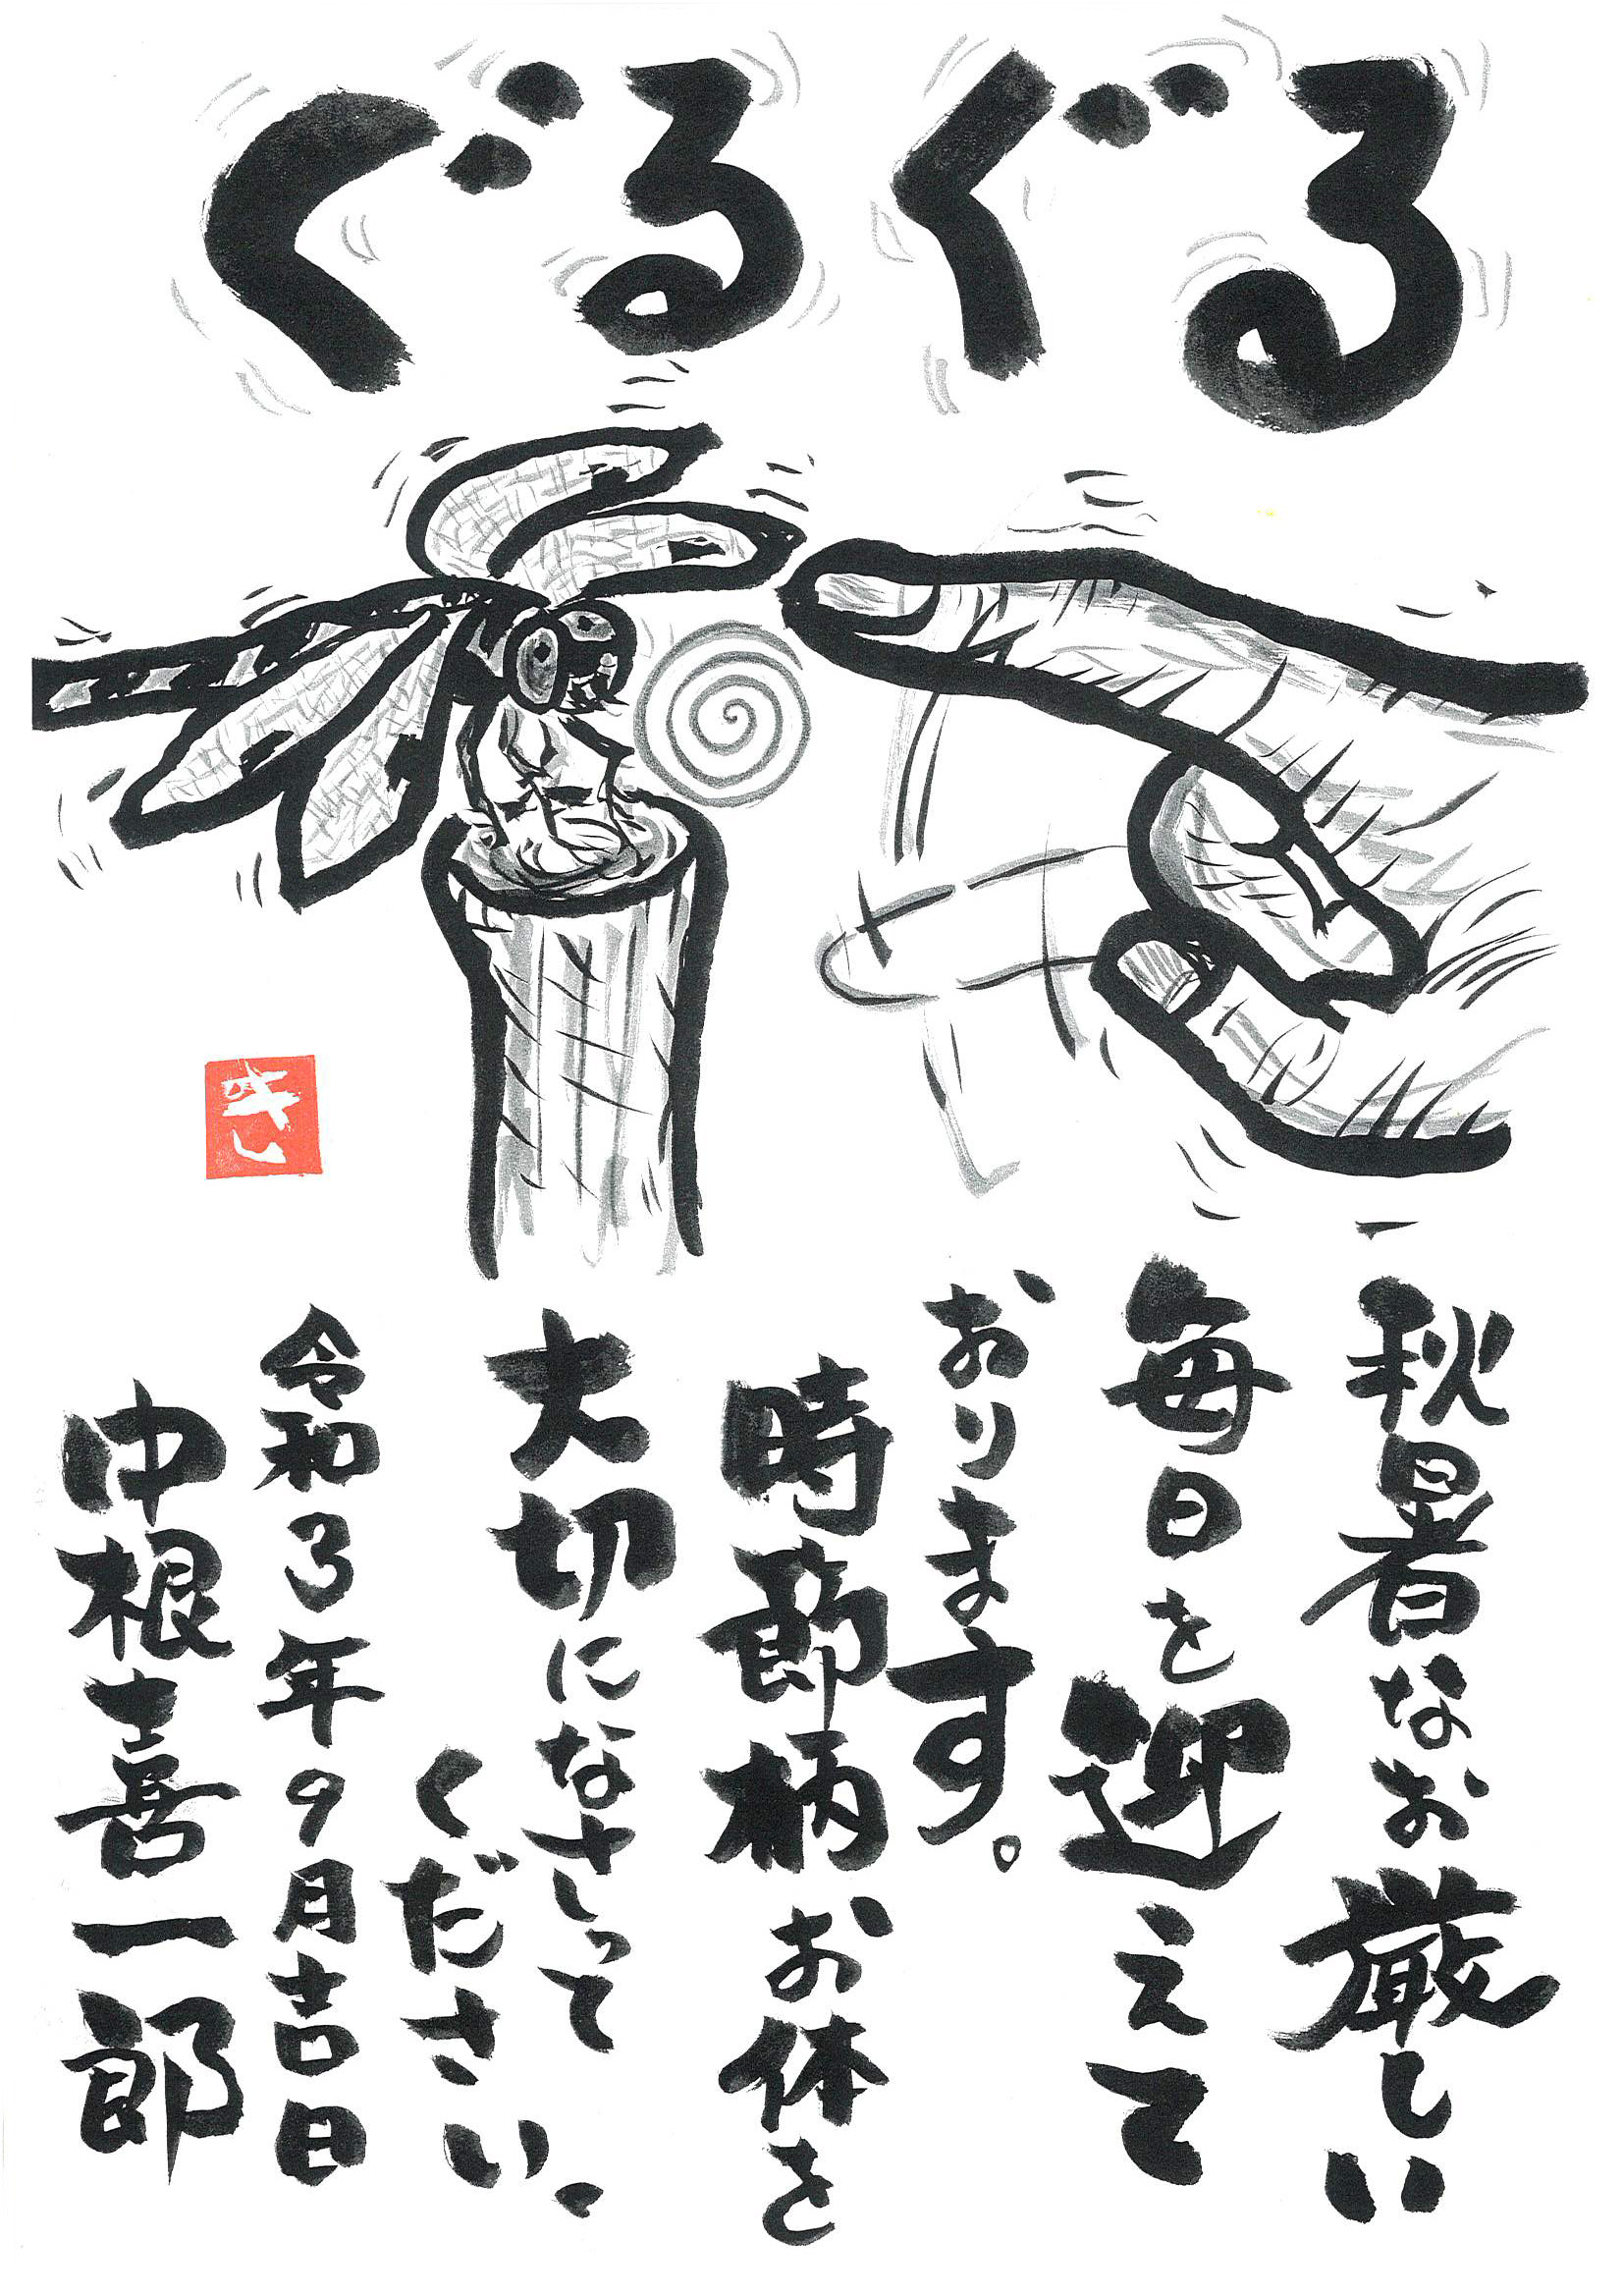 ぐるぐる
秋暑なお厳しい
毎日を迎えて
おります。
時節柄お体を
大切になさって
ください。
令和3年9月吉日
中根喜一郎
きし